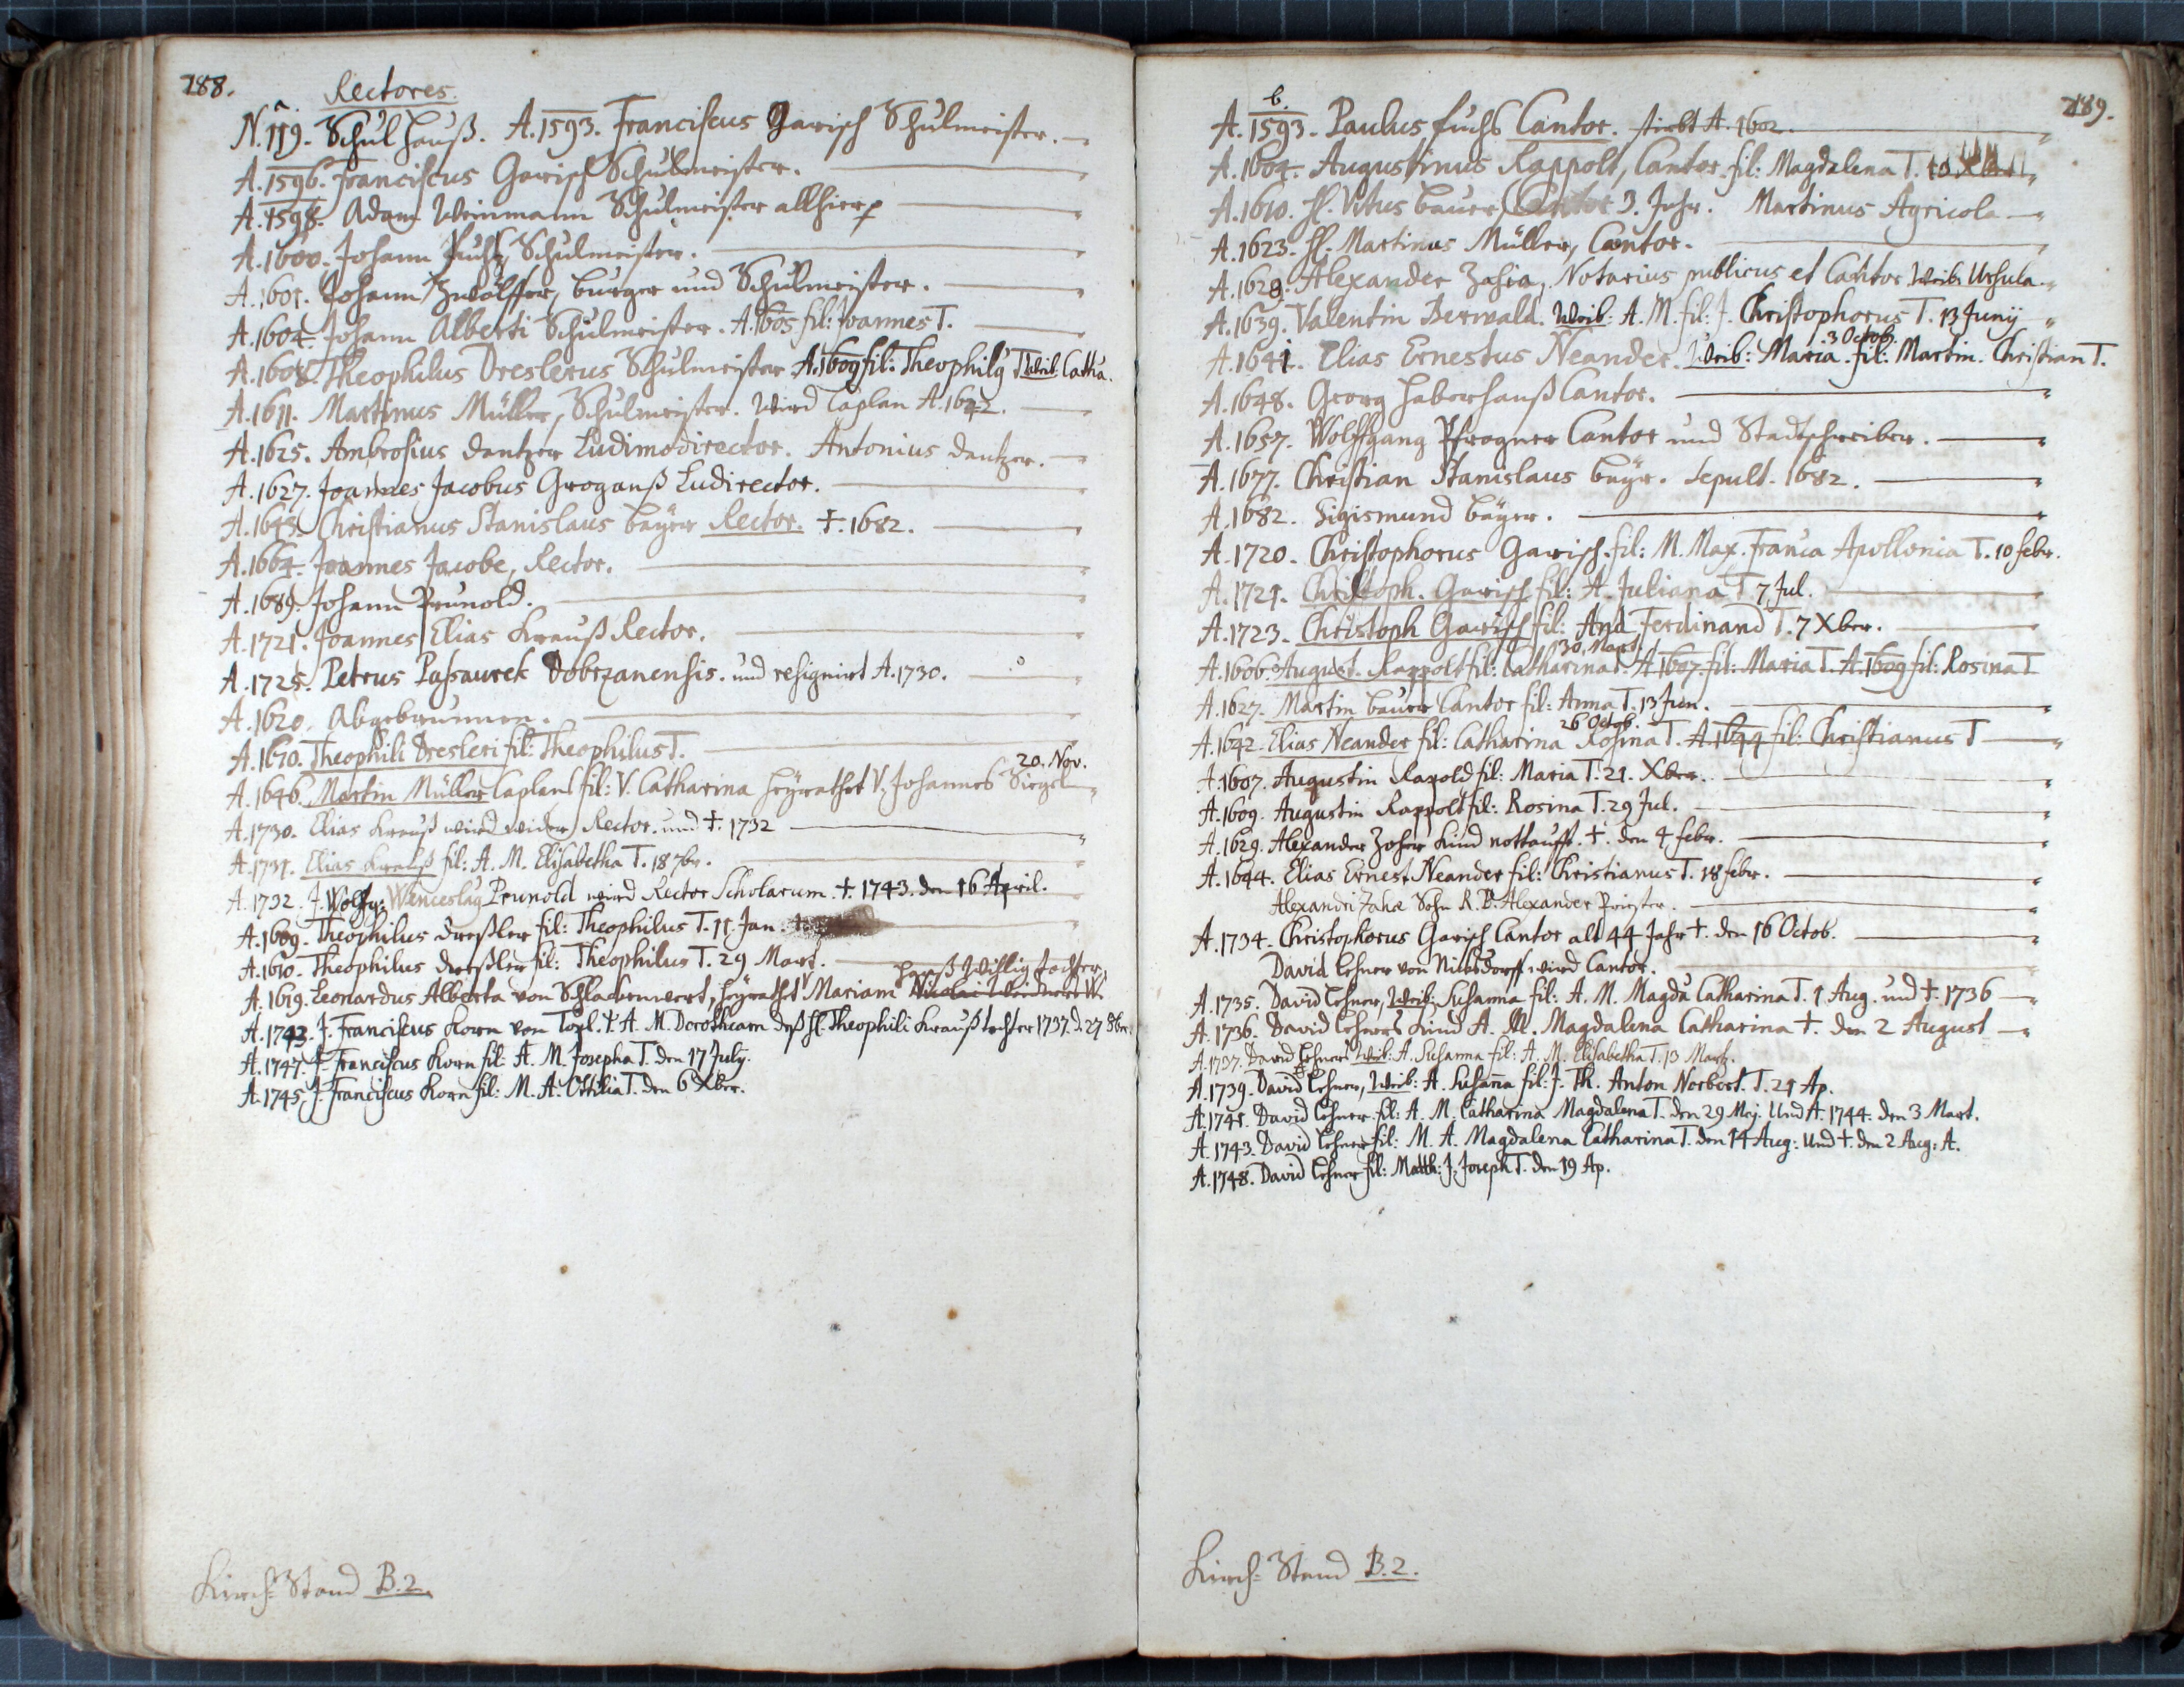 288.
Rectores.
a.
N. 119. Schul Hauß. A. 1593. Franciscus Garisch Schulmeister.
A. 1596. Franciscus Garisch Schulmeister.
A. 1598. Adam Weinmann Schulmeister allhier
A. 1600. Johann Fuchs, Schulmeister.
A. 1601. Johann Zwölffer, burger und Schulmeister.
A. 1604. Johann Alberti Schulmeister. A. 1605 fil: Joannes T.
A. 1608. Theophilus Dreslerus Schulmeister. A. 1609 fil: Theophilg T Weib. Catha.
A. 1611. Martinus Müller, Schulmeister. Wird Caplan A. 1622.
A. 1625. Ambrosius Dantzer Ludimodirector. Antonius Dantzer.
A. 1627. Joannes Jacobus Groganß Ludirector.
A. 1645. Christianus Stanislaus Bayer Rector. †. 1682.
A. 1664. Joannes Jacobe, Rector.
A. 1689. Johann Prunold.
A. 1721. Joannes Elias Krauß Rector.
A. 1725. Petrus Passaurek Dobrzanensis. und resignirt A. 1730.
A. 1620. Abgebrunnen.
A. 1610. Theophili Dresleri fil: Theophilus T.
20. Nov.
A. 1646. Martin Müller Caplan fil: V. Catharina heyrathet V. Johannes Siegel
A. 1730. Elias Krauß wird wider Rector. und †. 1732
A. 1731. Elias Krauß fil: A. M. Elisabetha T. 18 7br.
A. 1732. J. Wolfg: Wenceslag Prunold wird Rector Scholarum. †. 1743. den 16 April.
A. 1609. Theophilus dreßler fil: Theophilus T. 11. Jan.
A. 1610. Theophilus dreßler fil: Theophilus T. 29 Mart.
Hanß Willig tochter,
A. 1619. Leonardus Alberta von Schlackenwert, heyrathet Mariam Nicolai Weidners W.
A. 1743. J. Franciscus Korn von Töpl. T. A. M. Dorotheam deß H. Theophili Krauß tochter 1737. d. 27 8br.
A. 1747. J. Franciscus Korn fil: A. M. Josepha T. den 17 July.
A. 1745. J. Franciscus Korn fil: M. A. Ottilia T. den 6 Xber.
Kirch-Stand B. 2.
289.
b.
A. 1593. Paulus fuchs Cantor. stirbt A. 1602.
A. 1604. Augustinus Rappolt, Cantor. fil: Magdalena T. 10 X
A. 1610. H. Vitus bauer, Cantor 3. Jahr. Martinus Agricola
A. 1623. H. Martinus Müller, Cantor.
A. 1629. Alexander Zahra, Notarius publicus et Cantor. Weib. Ursula
A. 1639. Valentin Berwald. Weib: A. M. fil: J. Christophorus T. 13 Junÿ
3 Octob.
A. 1641. Elias Ernestus Neander. Weib: Maria. fil: Martin. Christian T.
A. 1648. Georg Haberhauß Cantor.
A. 1657. Wolffgang Pfrogner Cantor und Stadtschreiber.
A. 1677. Christian Stanislaus bayr. sepult. 1682.
A. 1682. Sigismund bayer.
A. 1720. Christophorus Garisch. fil: M. Max. Franca Apollonia T. 10 febr.
A. 1721. Christoph. Garisch fil: A. Juliana T 7 Jul.
A. 1723. Christoph Garisch fil: And Ferdinand T. 7 Xber.
30. Mart.
A. 1606. August. Rappolt fil: Catharina T. A. 1607. fil: Maria T. A. 1609 fil: Rosina T
A. 1627. Martin bauer Cantor fil: Anna T. 13 Jun.
26 Octob.
A. 1642. Elias Neander fil: Catharina Rosina T. A. 1644 fil: Christianus T
A. 1607. Augustin Rapold fil: Maria T. 21. Xber.
A. 1609. Augustin Rappolt fil: Rosina T. 29 Jul.
A. 1629. Alexander Zoher Kind nottaufft. †. den 4 febr.
A. 1644. Elias Ernest Neander fil: Christianus T. 18 febr.
Alexandri Zahæ Sohn R. P. Alexander Priester.
A. 1734. Christophorus Garisch Cantor alt 44 Jahr †. den 16 Octob.
David Lehner von Niklsdorff wird Cantor.
A. 1735. David Lehner, Weib: Susanna fil: A. M. Magda Catharina T. 1 Aug. und †. 1736
A. 1736. David Lehners Kind A. M. Magdalena Catharina †. den 2 August
A. 1737. David Lehners Weib: A. Susanna fil: A. M. Elisabetha T. 13 Martz.
A. 1739. David Lehner, Weib: A. Susaña fil: J. Th. Anton Norbert. T. 21 Ap.
A. 1741. David Lehner fil: A. M. Catharina Magdalena T. den 29 Mej. Und A. 1744. den 3 Mart.
A. 1743. David Lehner fil: M. A. Magdalena Catharina T. den 14 Aug: Und †. den 2 Aug: A.
A. 1748. David Lehner fil: Matth: J. Joseph T. den 19 Ap.
Kirch-Stand B. 2.